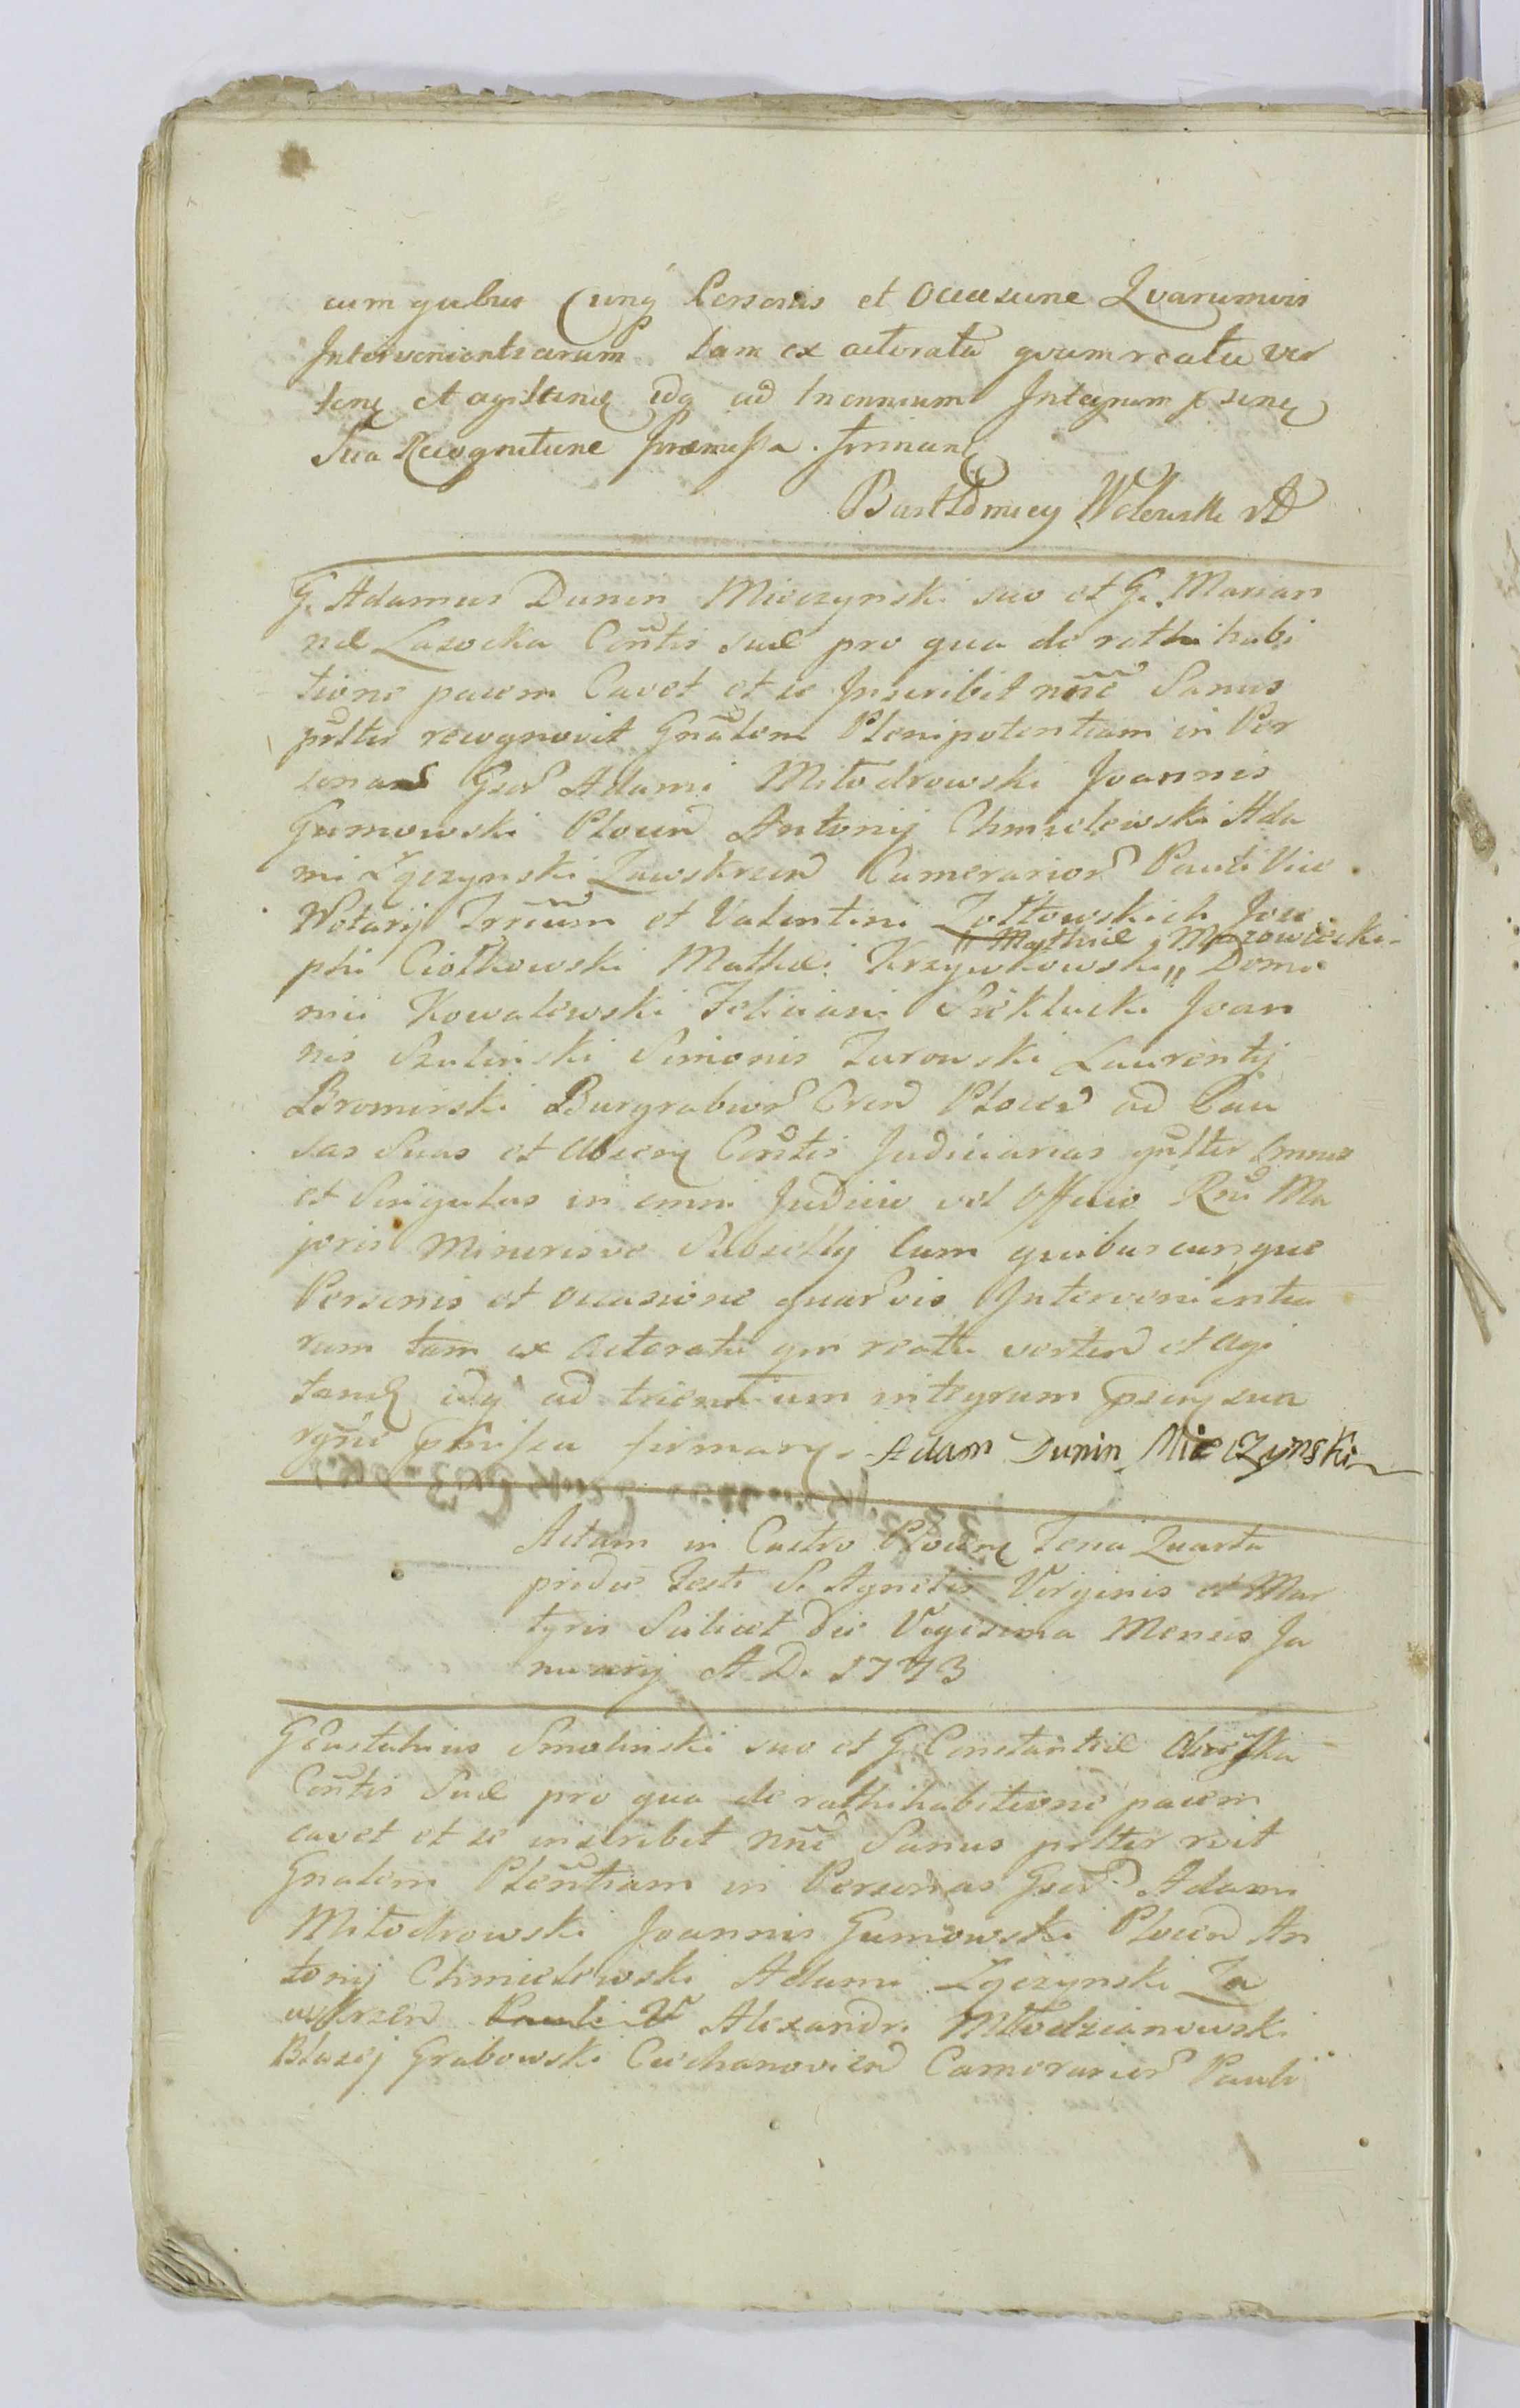 cum quibus Cunq Personis et Occasione Qvarumvis
Intervenientiarum tam ex actoratu qvam reatu ver
ten et agitan idq ad triennium Integrum psen
Sua Recognitione Præmissa. firman
Bartłomiey Wolewski
G. Adamus Dunin Mieczynski suo et G. Marian
næ Lasocka Contis suæ pro qua de rathihabi
tione pacem Cavet et se Inscribit nne Sanus
pstter recognovit Gnalem Plenipotentiam in Per
sonas Gser Adami Miłodrowski Joannis
Gumowski Plocen Antonij Chmielewski Ada
mi Zgczynski Zawskrzen Camerarior Pauli Vice
Notarij Trrium et Valentini Zołtowskich Jose
" Mathiæ Mazowiecki
phi Ciołkowski Mathei Krzywkowski " Domi
nici Kowalewski Feliciani Jan
nis Szulinski Simonis Zurowski Laurentij
Bromirski Burgrabior Cren Plocen ad Cau
sas Suas et Absen Contis Judiciarias gntter Omnes
et Singulas in omni Judicio vel Officio Rni Ma
joris Minorisve Subsellij Cum quibuscunque
Personis et occasione quarvis Intervenientia
rum tam ex actoratu qm reatu verten et agi
tand idq ad triennium integrum psen sua
rgne pmissa firman. Adam Dunin Mieczynski
Actum in Castro Plocen Feria Quarta
pridie Festi S. Agnetis Virginis et Mar
tyris Scilicet Die Vigesima Mensis Ja
nuarij A. D. 1773
G Eustahius Smolinski suo et G. Constantiæ
Contis Suæ pro qua de rathihabitione pacem
cavet et se inscribit nne Sanus pstter rvit
Gnalem Plentiam in Personas Gser Adami
Miłodrowski Joannis Gumowski Plocen An
tonij Chmielewski Adami Zgczynski Za
wskrzen Pauli V Alexandri Młodzianowski
Blasej Grabowski Ciechanovien Camerarior Pauli